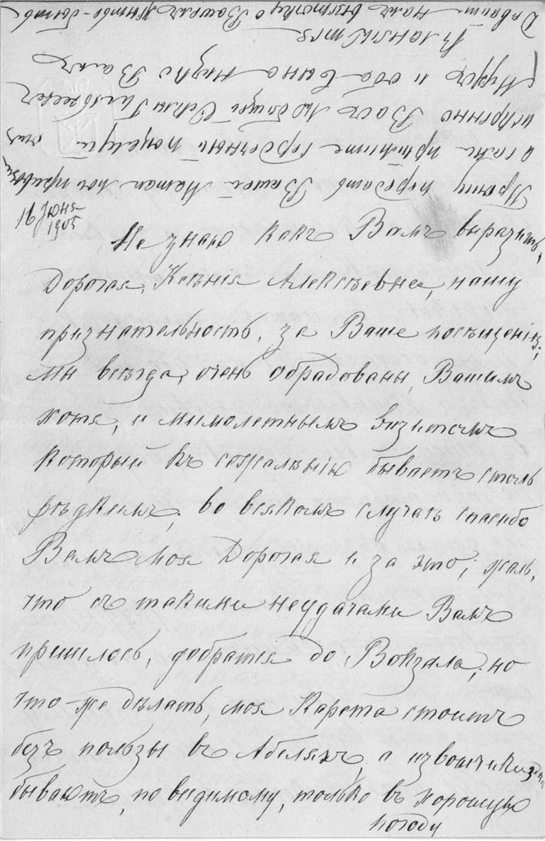 16 Июня
1905
Не знаю какъ Вамъ выразить,
Дорогая, Ксенія Алексѣевна, нашу
признательность, за Ваше посѣщеніе;
мы всегда, очень обрадованы, Вашимъ
хотя, и мимолетнымъ визитомъ
который къ сожалѣнію бываетъ столь
рѣдкимъ, во всякомъ случаѣ спасибо
Вамъ моя Дорогая и за это; жаль,
что съ такими неудачами Вамъ
пришлось, добратся до, Вокзала; но
что-же дѣлать, моя Карета стоитъ
безъ пользы въ Абеляхъ, а извощики
бываютъ, по видимому, только въ хорошую
погоду
Прошу передать Вашей Maman мой
а сами примите сердечный поцелуй
искренно Васъ любящей
Мужъ и оба Сына низко Вамъ
кланяются
Давайте намъ о Вашемъ